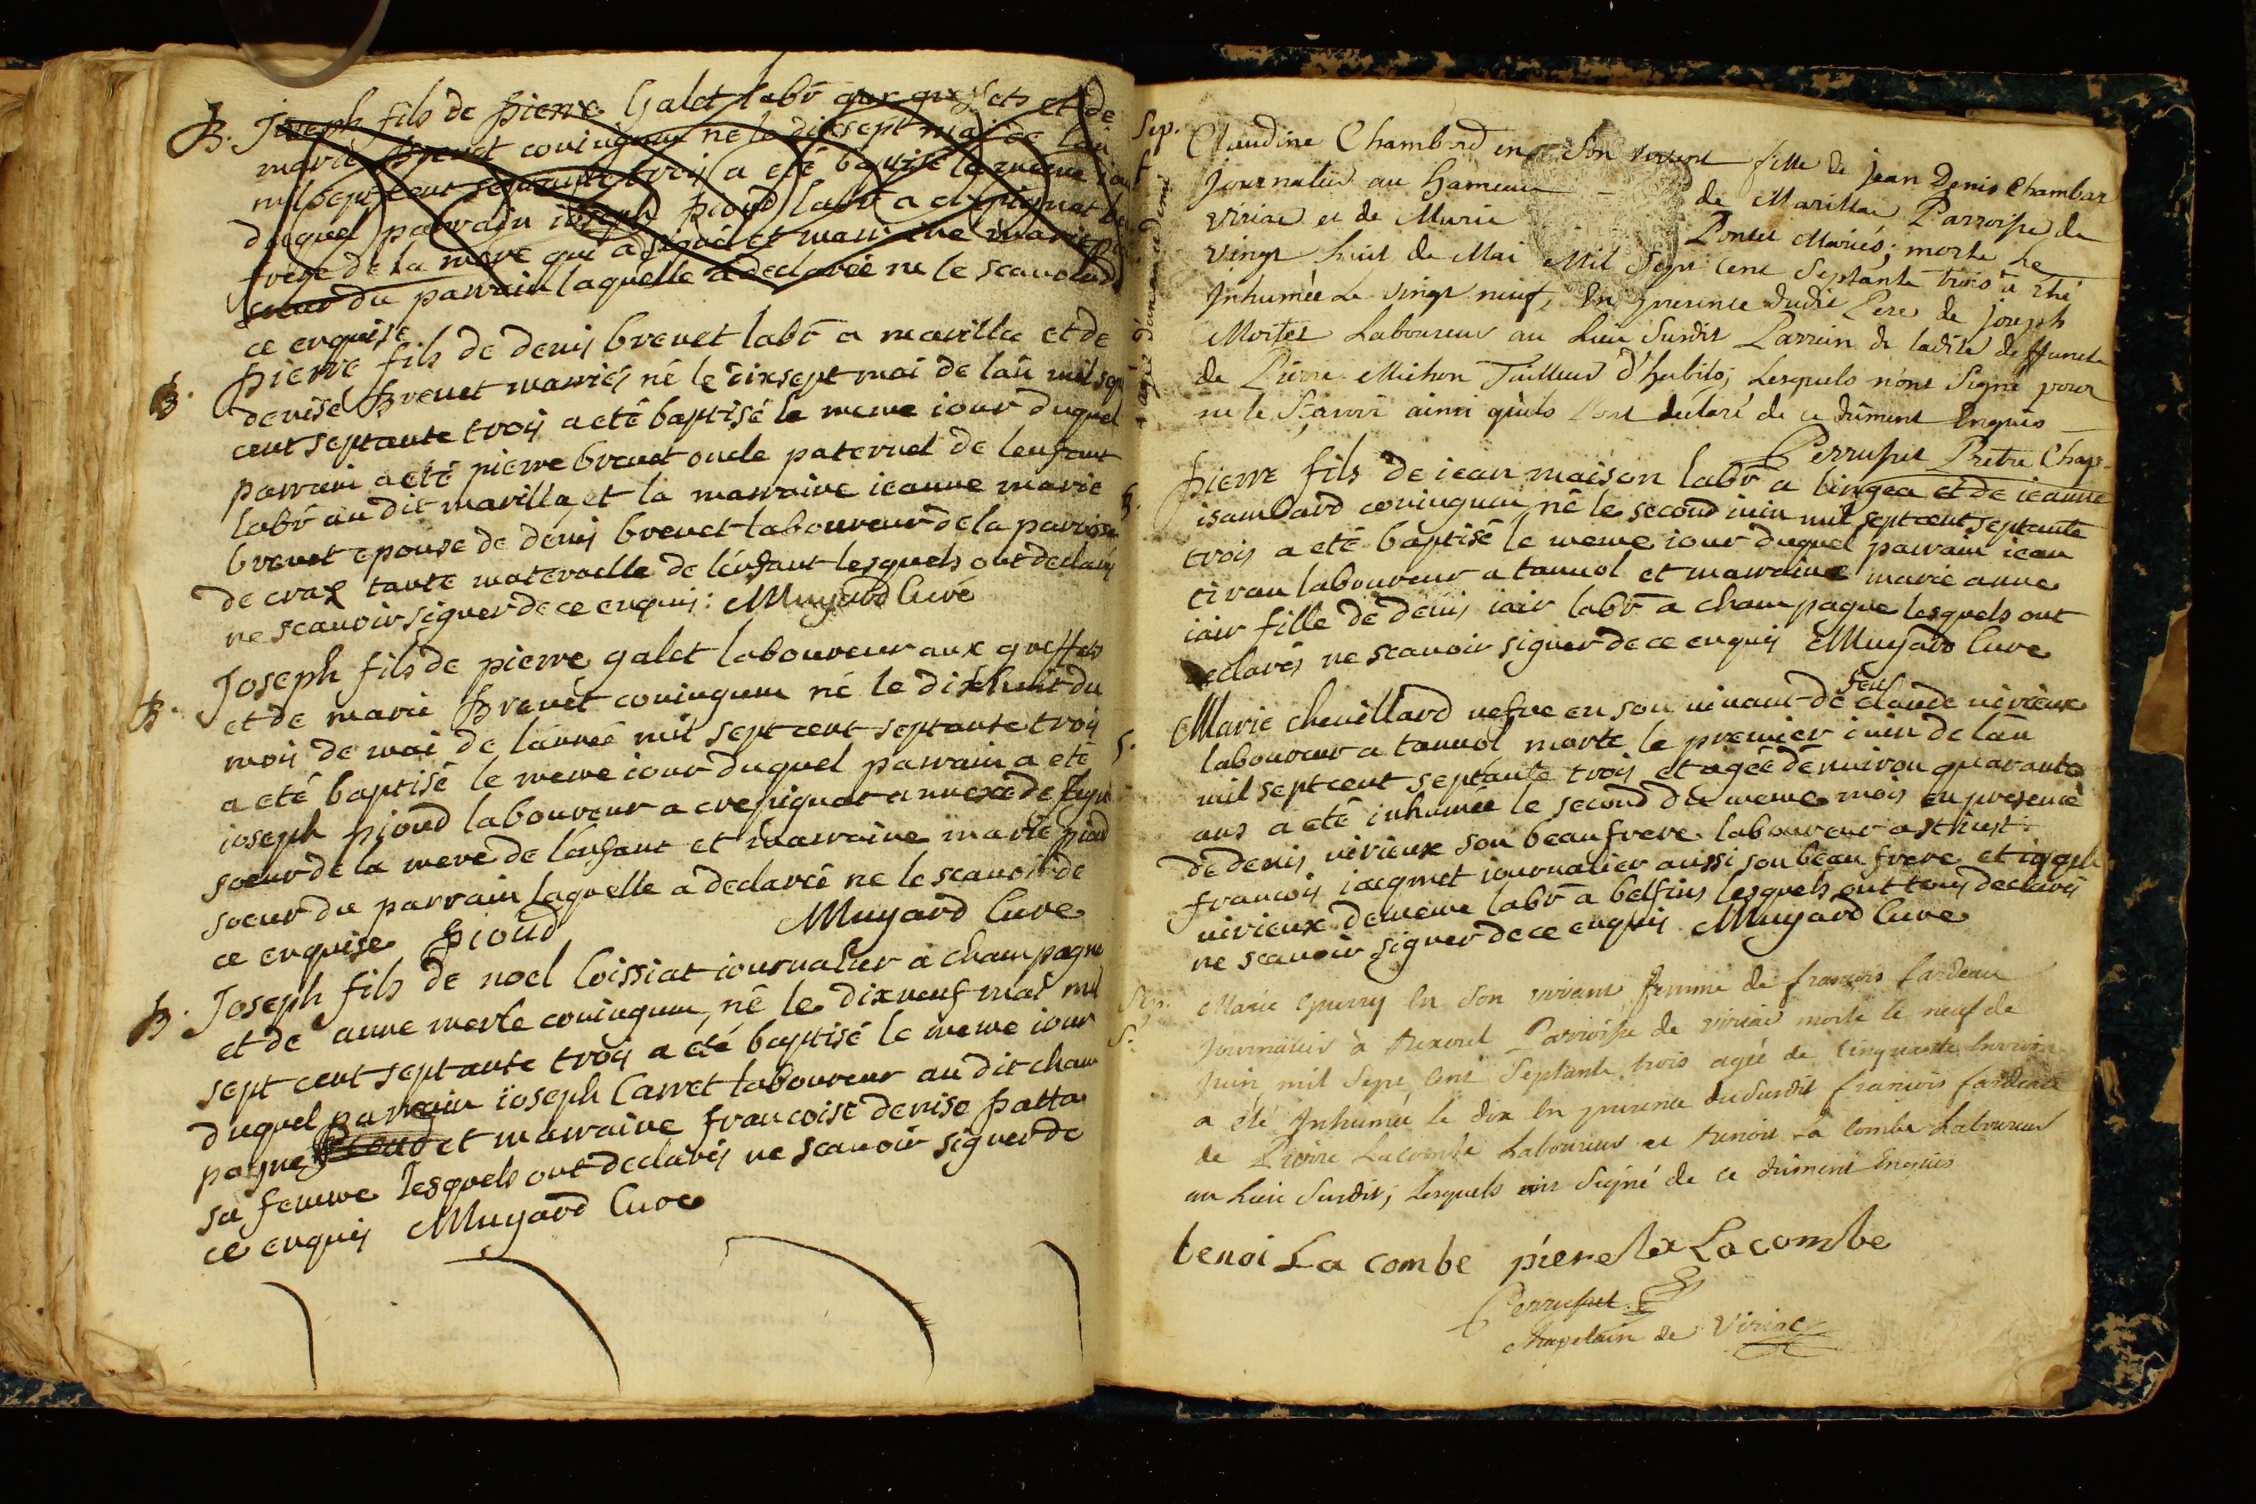 B. Joseph fils de pierre Galet labr aux greffets et de
marie Brevet coniugum né le dixsept mai de lan
mil sept cent septante trois a eté baptisé le meme iour
duquel parrain ioseph pioud labr a crepignat
frere de la mere qui a signé et marraine marie
soeur du parrain laquelle a declareé ne le scavoir de
ce enquise
B. pierre fils de denis brevet labr a marilla et de
denise Brevet mariés né le dixsept mai de lan mil sept
cent septante trois a eté baptisé le meme iour duquel
parrain a eté pierre brevet oncle paternel de lenfant
labr au dit marilla et la marraine ieanne marie
brevet epouse de denis brevet laboureur de la parroisse
de cras tante maternelle de lenfant lesquels ont declarés
ne scavoir signer de ce enquis: Muyard Curé
B. Joseph fils de pierre galet laboureur aux greffets
et de marie Brevet coniugum né le dixhuit du
mois de mai de lanneé mil sept cent septante trois
a eté baptisé le meme iour duquel parrain a eté
ioseph pioud laboureur a crepignat annexe de
soeur de la mere de lenfant et marraine marie pioud
soeur du parrain laquelle a declareé ne le scavoir de
ce enquise pioud Muyard Cure
B. Joseph fils de noel loissiat iournalier a champagne
et de anne merle coniugum, né le dixneuf mai mil
sept cent septante trois a eté baptisé le meme iour
duquel parrain ioseph Carret laboureur au dit cham
pagne pioud et marraine francoise denise patta
sa femme lesquels ont declarés ne scavoir signer de
ce enquis Muyard Cure
Sep.
Claudine Chambard en son vivant fille de jean Denis Chambar
journalier au hameau de Marillac Parroisse de
Viriac et de Marie Pontet Mariés; morte le
vingt huit de Mai Mil Sept Cent Septante trois a été
Inhumée le vingt neuf, En presence dudit Pere de joseph
Moiret Laboureur au Lieu Susdit Parrein de ladite deffuncte
de Pierre Michon Tailleur d'habits; Lesquels n'ont Signé pour
ne le Sçavoir ainsi qu'ils L'ont déclaré de ce dûment Enquis
Perruset Prêtre Chap.
agée d'un an et demi
B. pierre fils de iean maison labr a bingea et de ieanne
isambard coniugum, né le second iuin mil sept cent septante
trois a eté baptisé le meme iour duquel parrain iean
tiran laboureur a tannol et marraine marie anne
iair fille de denis iair labr a champagne lesquels ont
declarés ne scavoir signer de ce enquis Muyard Cure
S. Marie chevillard vefve en son vivant de feu claude virieux
laboureur a tannol morte le premier iuin de lan
mil sept cent septante trois et agée denviron quarante
ans a eté inhumée le second du meme mois en presence
de denis virieux son beau frere laboureur a st iust:
francois iacquet iournalier aussi son beau frere et ioseph
virieux de meme labr a belfins lesquels ont tous declarés
ne scavoir signer de ce enquis Muyard Cure
Sep.
S.
Marie Guerry En Son vivant femme de francois fardeau
Journalier à Parroisse de viriac morte le neuf de
Juin mil Sept Cent Septante trois agée de Cinquante Environ
a été Inhumée le dix En presence du Susdit francois fardeau
de Pierre Lacombe Laboureur et Benoit la Combe Laboureur
au Lieu Susdit; Lesquels ont Signé de ce dûment Enquis
benoi La combe piere La combe
Perruset
Chapelain de Viriac